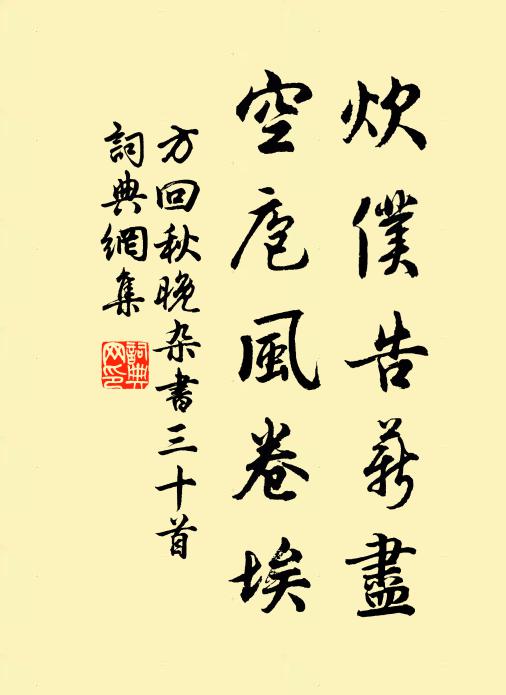 炊僕告薪盡
空庖風卷埃
方回秋晚杂書三十首
詞典網集
詞典网印